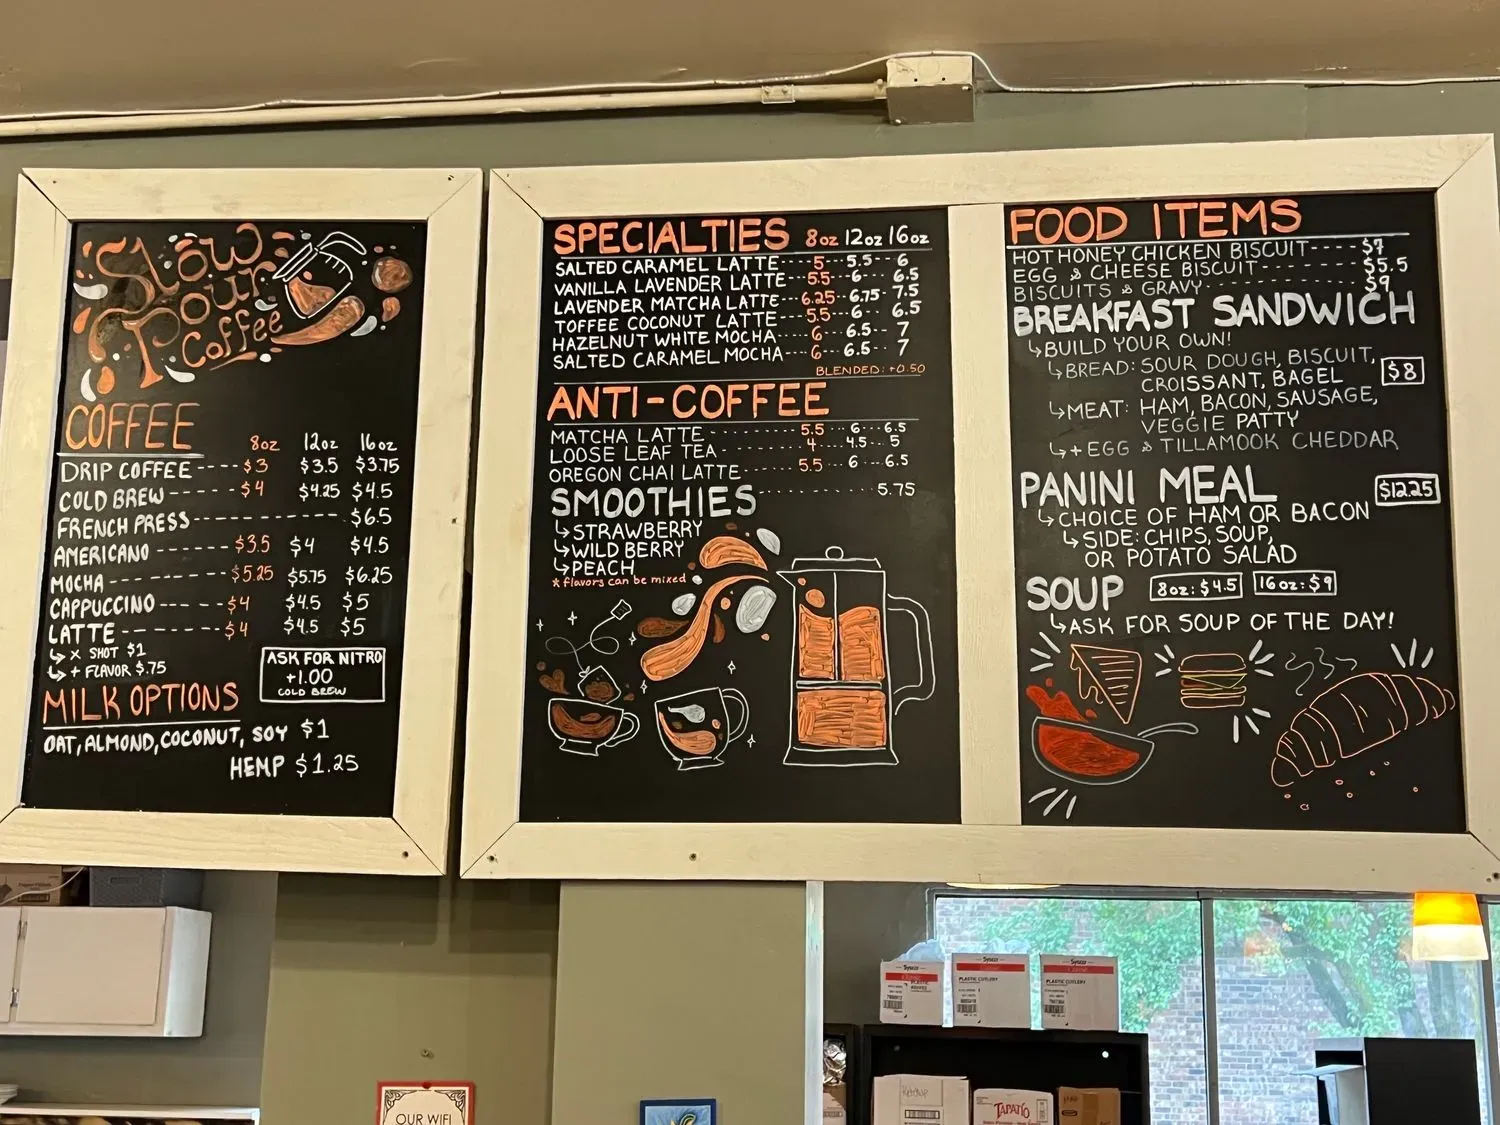 Slow
Pour
Coffee
COFFEE
8oz 12oz 16oz
DRIP COFFEE ---- $3 $3.5 $3.75
COLD BREW ------- $4 $4.25 $4.5
FRENCH PRESS ------------ $6.5
AMERICANO ------- $3.5 $4 $4.5
MOCHA ---------- $5.25 $5.75 $6.25
CAPPUCCINO ---- - $4 $4.5 $5
LATTE --------- $4 $4.5 $5
↳ X SHOT $1
↳ + FLAVOR $.75
ASK FOR NITRO
+1.00
COLD BREW
MILK OPTIONS
OAT, ALMOND, COCONUT, SOY $1
HEMP $1.25
SPECIALTIES 8oz 12oz 16oz
SALTED CARAMEL LATTE --- 5 --- 5.5 --- 6
VANILLA LAVENDER LATTE --- 5.5 --- 6 --- 6.5
LAVENDER MATCHA LATTE --- 6.25 --- 6.75 --- 7.5
TOFFEE COCONUT LATTE --- 5.5 --- 6 --- 6.5
HAZELNUT WHITE MOCHA --- 6 --- 6.5 --- 7
SALTED CARAMEL MOCHA --- 6 --- 6.5 --- 7
BLENDED: +0.50
ANTI-COFFEE
MATCHA LATTE ---------- 5.5 -- 6 --- 6.5
LOOSE LEAF TEA --------- 4 ---- 4.5 --- 5
OREGON CHAI LATTE ------ 5.5 --- 6 --- 6.5
SMOOTHIES ------------ 5.75
↳ STRAWBERRY
↳ WILD BERRY
↳ PEACH
* flavors can be mixed
FOOD ITEMS
HOT HONEY CHICKEN BISCUIT ---- $7
EGG & CHEESE BISCUIT ---------- $5.5
BISCUITS & GRAVY ------------- $9
BREAKFAST SANDWICH
↳ BUILD YOUR OWN!
↳ BREAD: SOUR DOUGH, BISCUIT,
CROISSANT, BAGEL
$8
↳ MEAT: HAM, BACON, SAUSAGE,
VEGGIE PATTY
↳ + EGG & TILLAMOOK CHEDDAR
PANINI MEAL $12.25
↳ CHOICE OF HAM OR BACON
↳ SIDE: CHIPS, SOUP,
OR POTATO SALAD
SOUP 8oz: $4.5 16oz: $9
↳ ASK FOR SOUP OF THE DAY!
Sysco
Sysco
PLASTIC CUTLERY
Sysco
PLASTIC CUTLERY
KETCHUP
TAPATIO
OUR WIFI